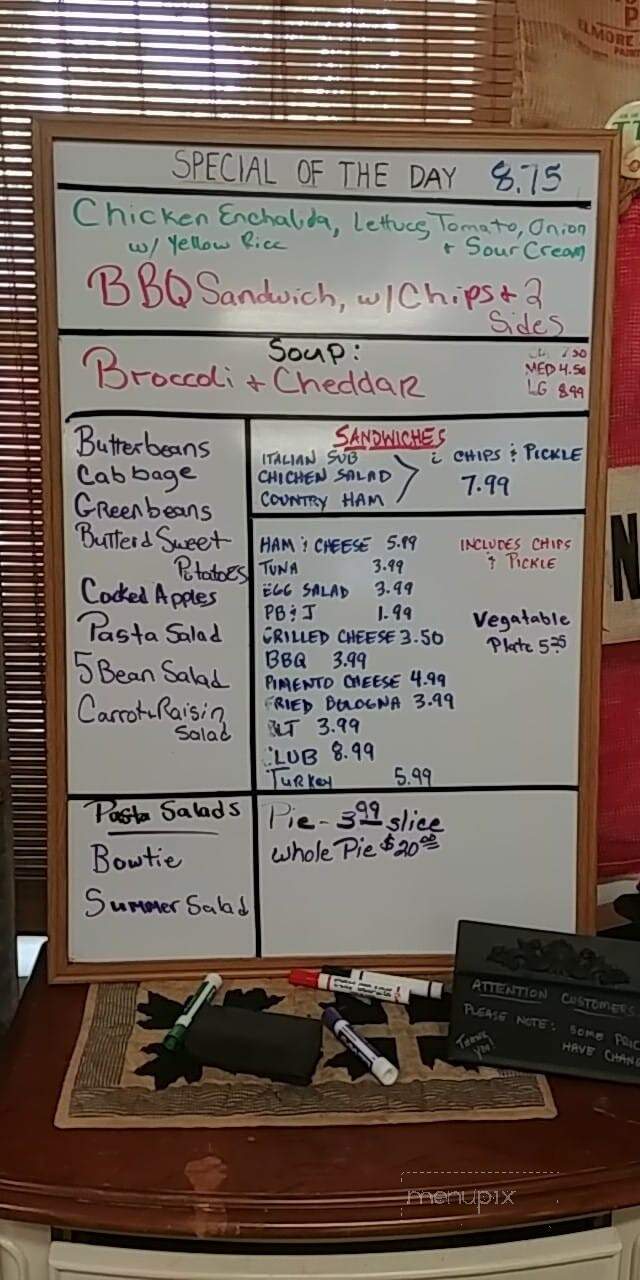 SPECIAL OF THE DAY 8.75
Chicken Enchalida, Lettuce, Tomato, Onion
w/ Yellow Rice + Sour Cream
BBQ Sandwich, w/ Chips + 2
Sides
Soup:
Broccoli + Cheddar
MED 4.50
LG 8.99
Butterbeans
Cabbage
Greenbeans
Butterd Sweet
Potatoes
Cooked Apples
Pasta Salad
5 Bean Salad
Carrot & Raisin
Salad
SANDWICHES
ITALIAN SUB
CHICHEN SALAD
COUNTRY HAM
CHIPS & PICKLE
7.99
HAM & CHEESE 5.99
TUNA 3.99
EGG SALAD 3.99
PB & J 1.99
GRILLED CHEESE 3.50
BBQ 3.99
PIMENTO CHEESE 4.99
FRIED BOLOGNA 3.99
BLT 3.99
CLUB 8.99
TURKEY 5.99
INCLUDES CHIPS
& PICKLE
Vegatable
Plate 5.25
Pasta Salads
Bowtie
Summer Salad
Pie - 3.99 slice
whole Pie $20.00
ATTENTION CUSTOMERS
PLEASE NOTE: SOME PRIC
HAVE CHAN
THANK
YOU!
ELMORE
N
menupix